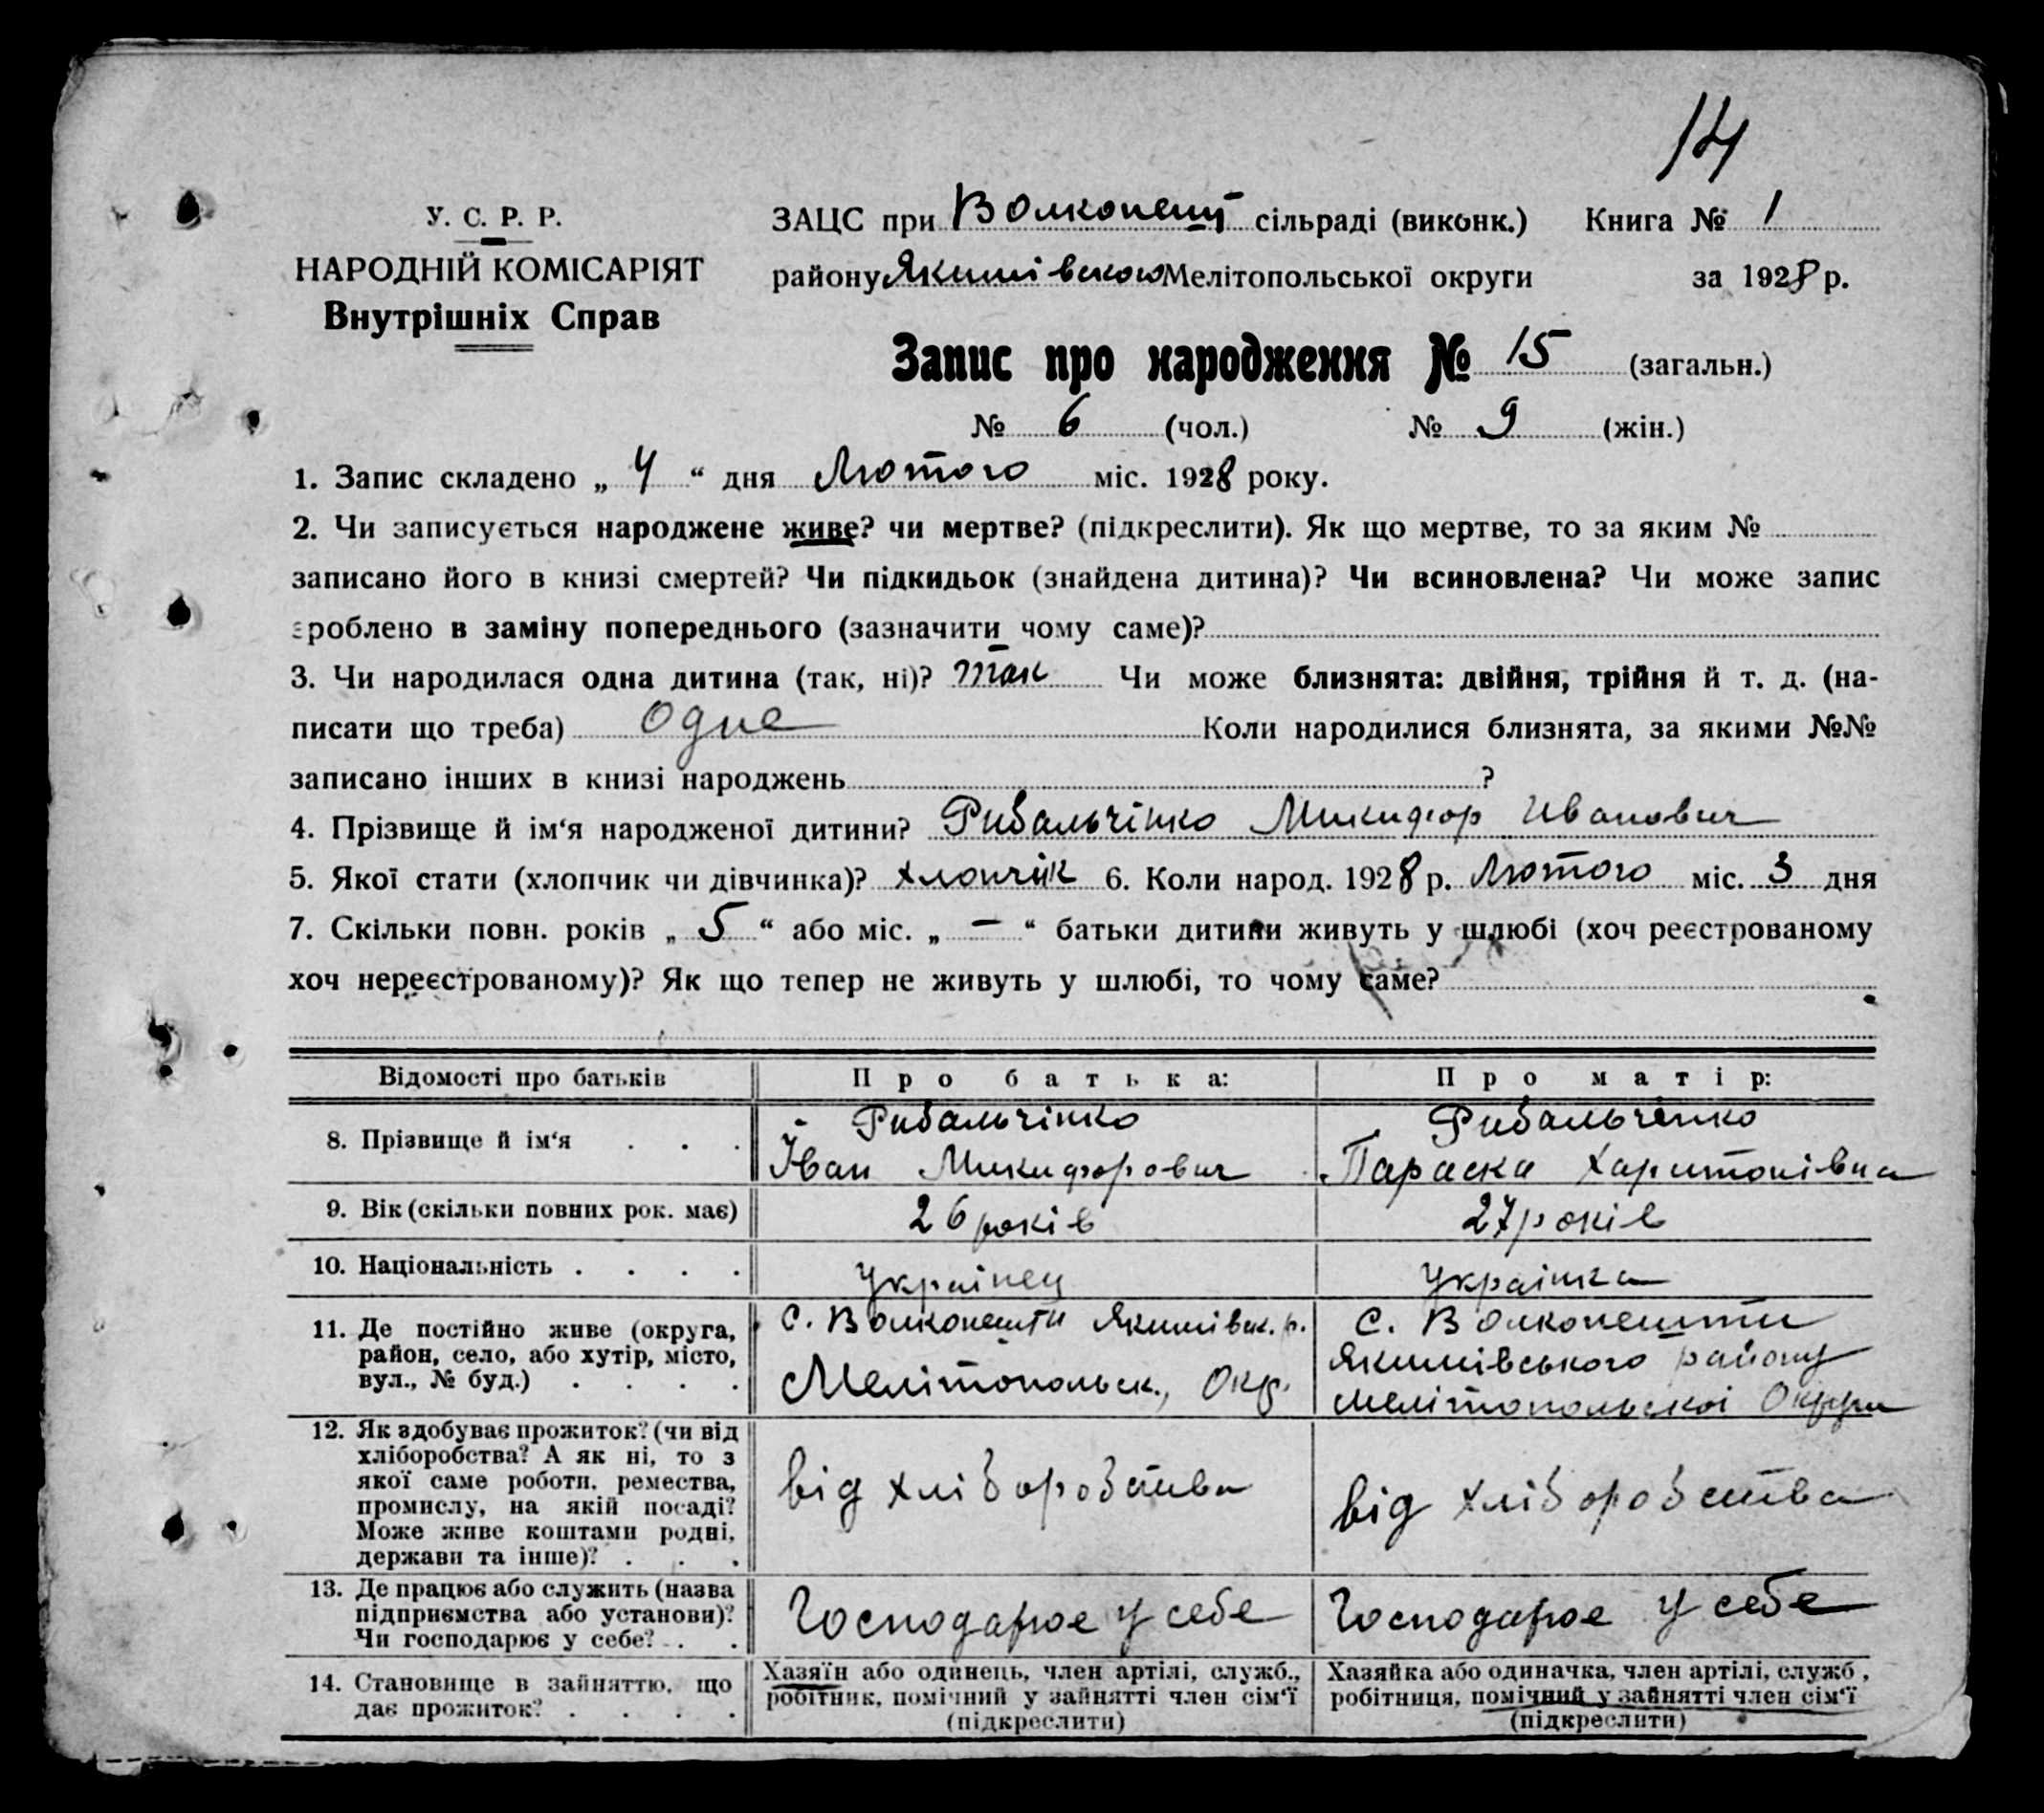 14
У. С. Р. Р.
НАРОДНІЙ КОМІСАРІЯТ
Внутрішніх Справ
ЗАЦС при Волконешт сільраді (виконк.) Книга № 1
району Якимівского Мелітопольської округи за 1928 р.
Запис про народження № 15 (загальн.)
№ 6 (чол.) № 9 (жін.)
1. Запис складено „ 4 “ дня Лютого міс. 1928 року.
2. Чи записується народжене живе? чи мертве? (підкреслити). Як що мертве, то за яким №
записано його в книзі смертей? Чи підкидьок (знайдена дитина)? Чи всиновлена? Чи може запис
зроблено в заміну попереднього (зазначити чому саме)?
3. Чи народилася одна дитина (так, ні)? так Чи може близнята: двійня, трійня й т. д. (на-
писати що треба) Одне Коли народилися близнята, за якими №№
записано інших в книзі народжень ?
4. Прізвище й ім‘я народженої дитини? Рибальчінко Микифор Иванович
5. Якої стати (хлопчик чи дівчинка)? хлопчик 6. Коли народ. 1928 р. Лютого міс. 3 дня
7. Скільки повн. років „ 5 “ або міс. „ — “ батьки дитини живуть у шлюбі (хоч реєстрованому
хоч нереєстрованому)? Як що тепер не живуть у шлюбі, то чому саме?
Відомості про батьків Про батька: Про матір:
8. Прізвище й ім‘я . . . Рибальчінко Іван Микифорович Рибальчінко Параска Харитонівна
9. Вік (скільки повних рок. має) 26 років 27 років
10. Національність . . . . Українец Українка
11. Де постійно живе (округа,
район, село, або хутір, місто,
вул., № буд.) . . . .
с. Волконешти Якимівск. р.
Мелітопольск., Окр.
с. Волконешти
Якимівського району
Мелітопольскої Округи
12. Як здобуває прожиток? (чи від
хліборобства? А як ні, то з
якої саме роботи, ремества,
промислу, на якій посаді?
Може живе коштами родні,
держави та інше)? . . .
від хліборобства
від хліборобства
13. Де працює або служить (назва
підприємства або установи)?
Чи господарює у себе? . .
Господарює у себе
Господарює у себе
14. Становище в зайняттю, що
дає прожиток? . . . .
Хазяїн або одинець, член артілі, служб.,
робітник, помічний у зайнятті член сім‘ї
(підкреслити)
Хазяйка або одиначка, член артілі, служб.,
робітниця, помічний у зайнятті член сім‘ї
(підкреслити)